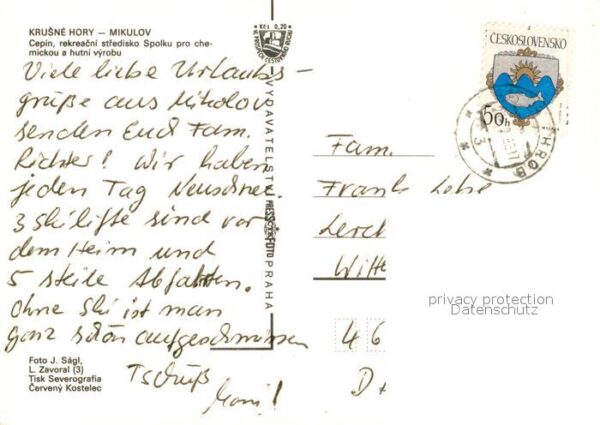 KRUŠNÉ HORY — MIKULOV
Cepin, rekreační středisko Spolku pro che-
mickou a hutní výrobu
Viele liebe Urlaubs-
grüße aus Mikolov
senden Euch Fam.
Richter! Wir haben
jeden Tag Neuschnee.
3 Skilifte sind vor
dem Heim und
5 steile Abfahrten.
Ohne Ski ist man
ganz schön aufgeschmissen
Tschüß
Foto J. Ságl,
L. Zavoral (3)
Tisk Severografia
Červený Kostelec
Kčs 0,20
VYDAVATELSTVÍ PRESSFOTO PRAHA
ČESKOSLOVENSKO
50h
Fam.
Frank
Witte
privacy protection
Datenschutz
4 6
D